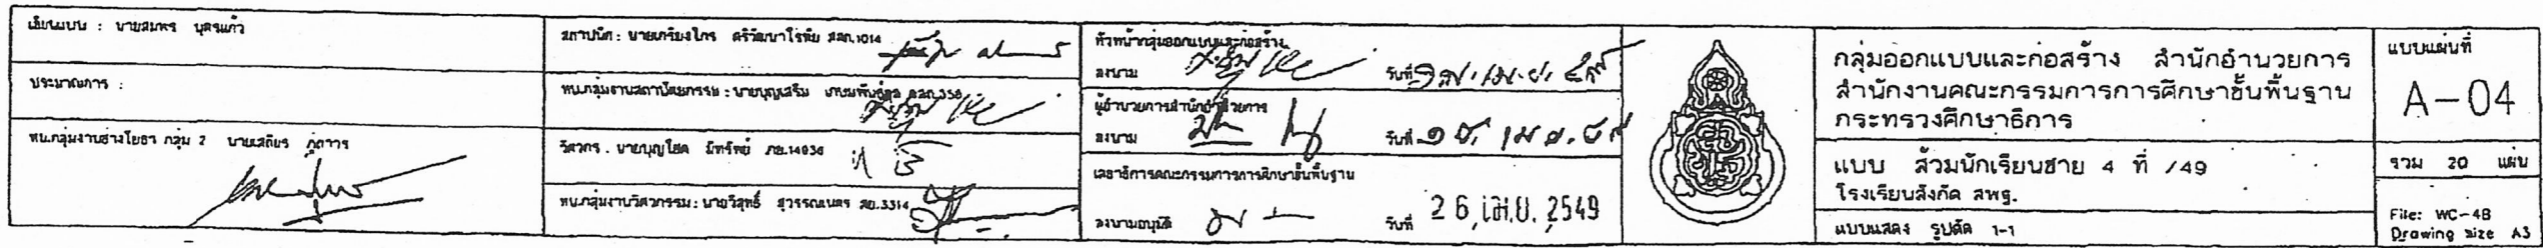 เขียนแบบ : นายสมพร บุตรแก้ว
ประมาณการ :
หน.กลุ่มงานช่างโยธา กลุ่ม 2 นายเสถียร
สถาปนิก : นายเกรียงไกร ตรีวัฒนาโรทัย สสถ.1014
หน.กลุ่มงานสถาปัตยกรรม : นายบุญเสริม
วิศวกร . นายบุญโชค มีทรัพย์ ภย.14936
หน.กลุ่มงานวิศวกรรม : นายวิสุทธิ์ สุวรรณเนตร สย.3314
หัวหน้ากลุ่มออกแบบและก่อสร้าง
ลงนาม วันที่
ผู้อำนวยการสำนักอำนวยการ
ลงนาม วันที่
เลขาธิการคณะกรรมการการศึกษาขั้นพื้นฐาน
ลงนามอนุมัติ วันที่ 26 เม.ย. 2549
กลุ่มออกแบบและก่อสร้าง สำนักอำนวยการ
สำนักงานคณะกรรมการการศึกษาขั้นพื้นฐาน
กระทรวงศึกษาธิการ
แบบ ส้วมนักเรียนชาย 4 ที่ /49
โรงเรียนสังกัด สพฐ.
แบบแสดง รูปตัด 1-1
แบบแผ่นที่
A-04
รวม 20 แผ่น
File: WC-4B
Drawing size A3